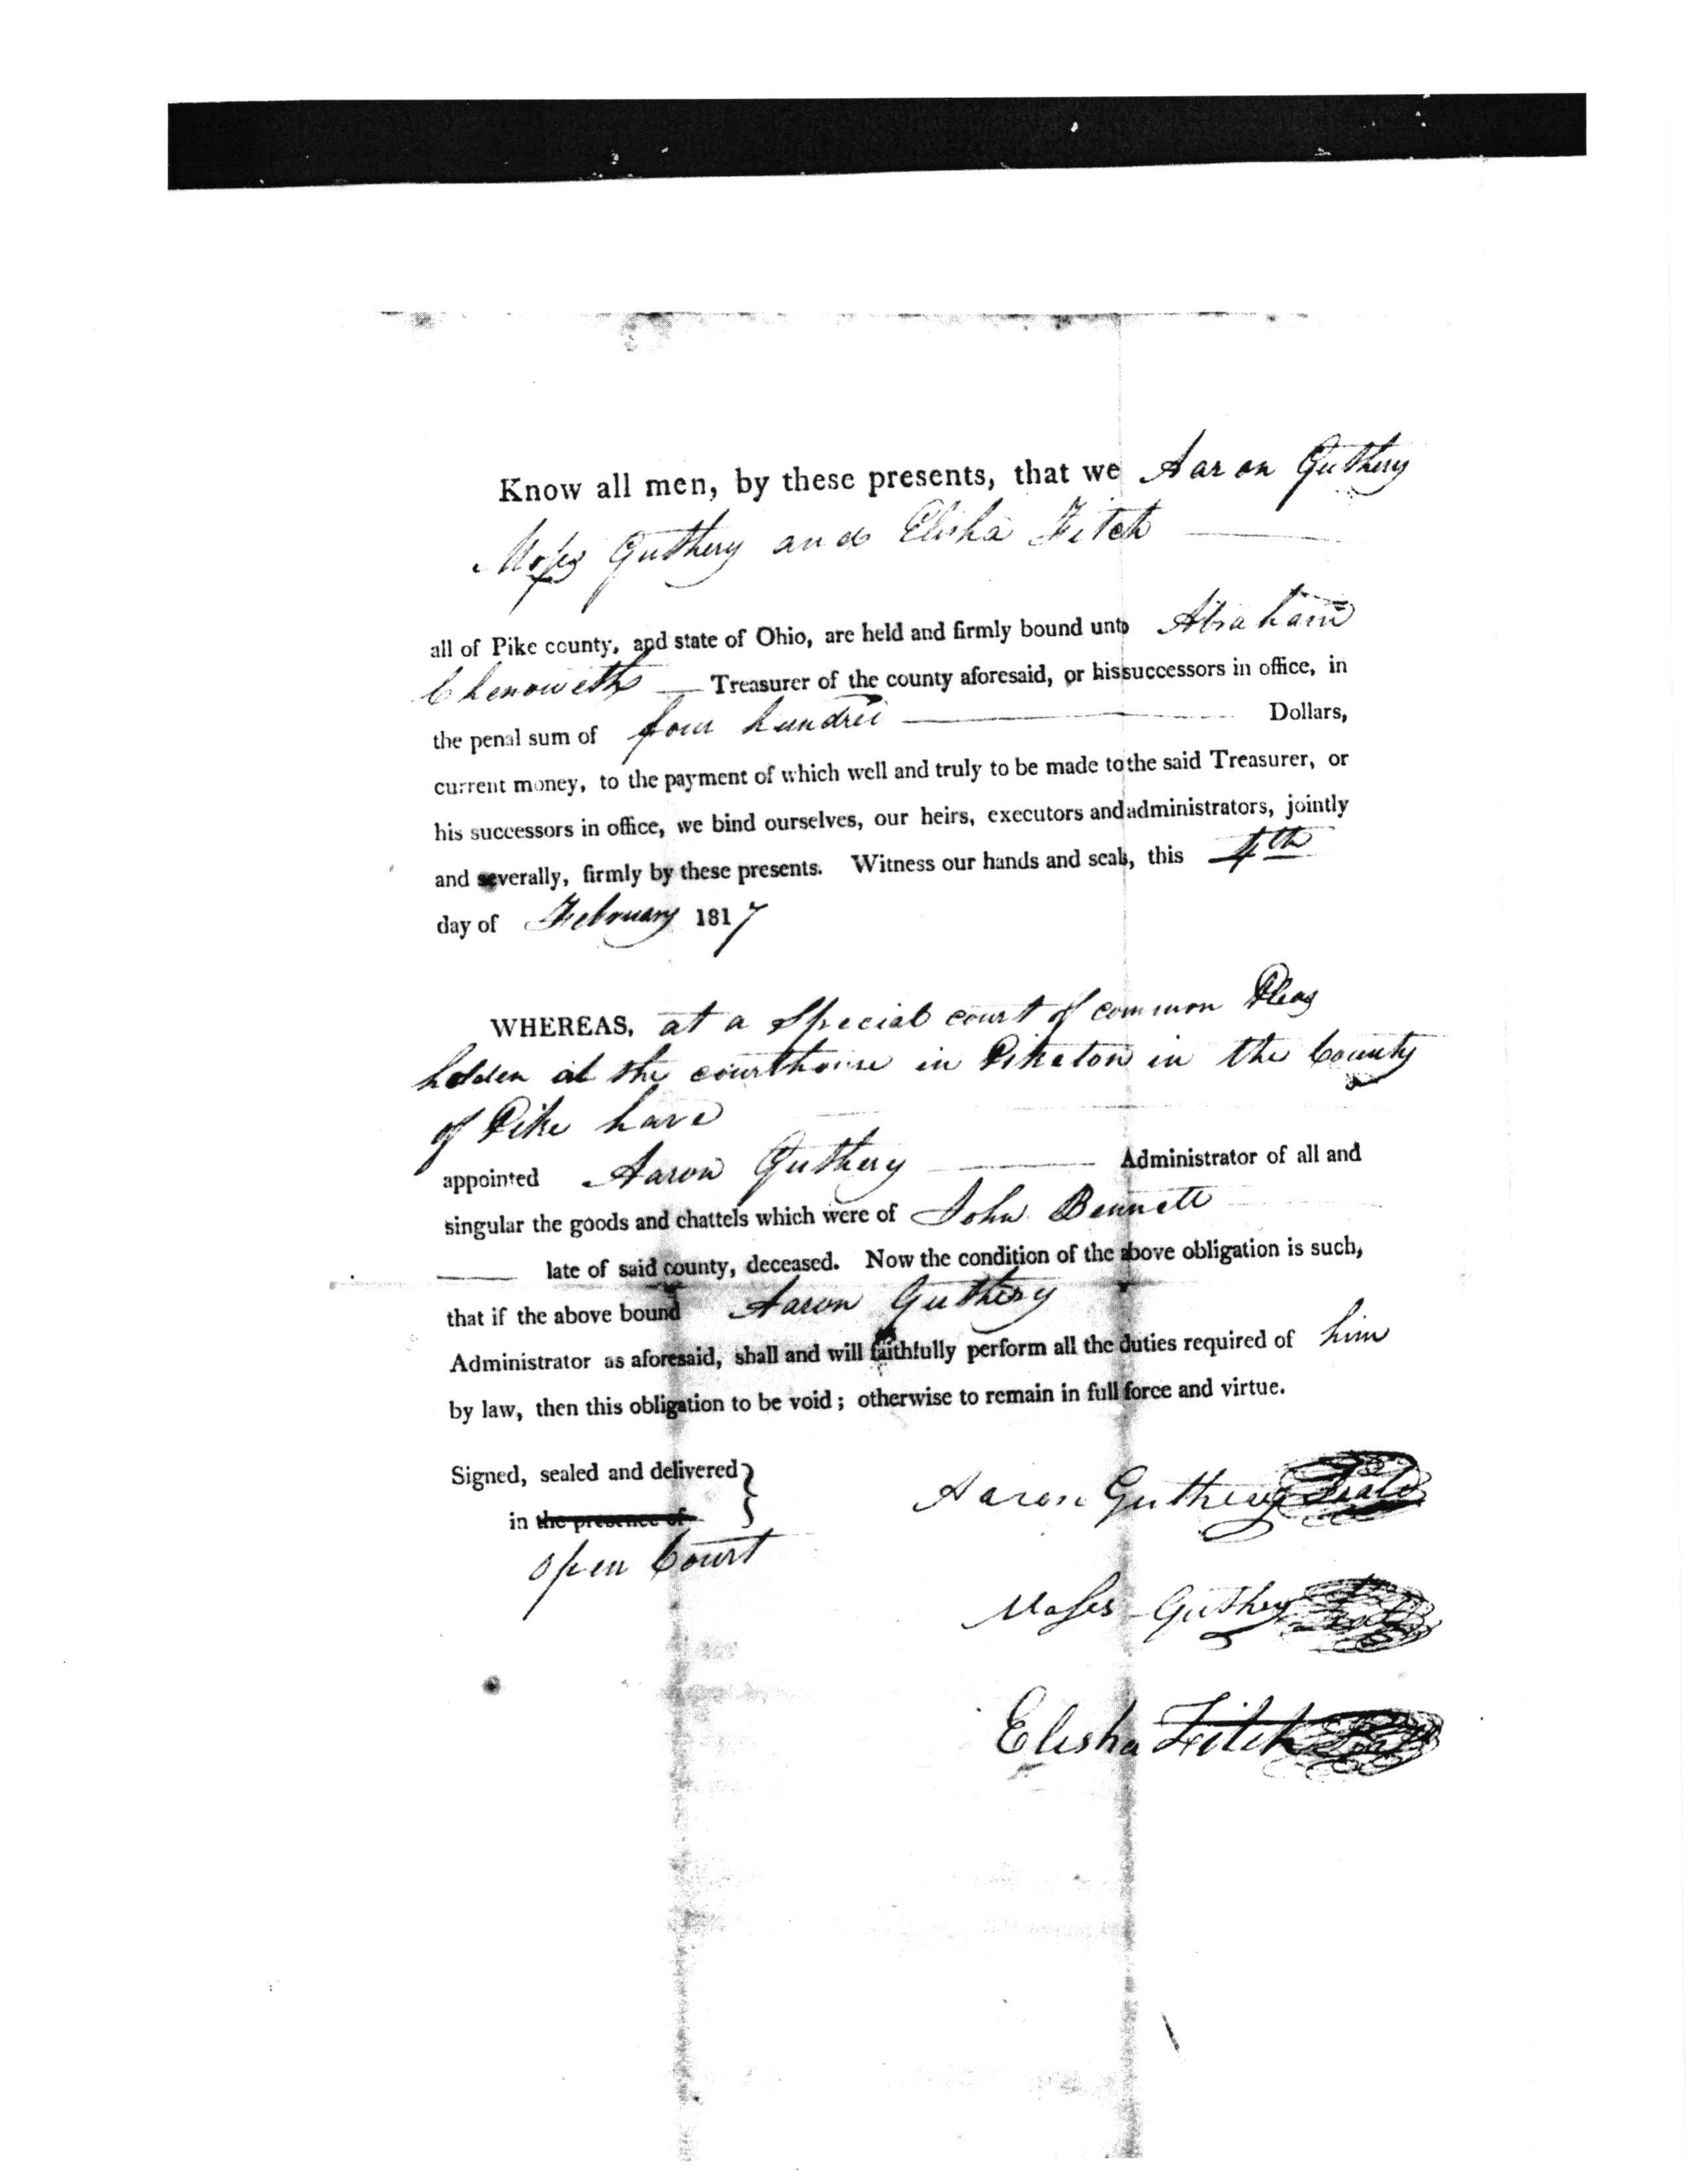 Know all men, by these presents, that we Aaron Guthery
Moses Guthery and Elisha Fitch
all of Pike county, and state of Ohio, are held and firmly bound unto Abraham
Chenoweth — Treasurer of the county aforesaid, or his successors in office, in
the penal sum of four hundred — Dollars,
current money, to the payment of which well and truly to be made to the said Treasurer, or
his successors in office, we bind ourselves, our heirs, executors and administrators, jointly
and severally, firmly by these presents. Witness our hands and seals, this 4th
day of February 1817
WHEREAS, at a Special court of common Pleas
holden at the courthouse in Piketon in the County
of Pike have
appointed Aaron Guthery — Administrator of all and
singular the goods and chattels which were of John Bennett
— late of said county, deceased. Now the condition of the above obligation is such,
that if the above bound Aaron Guthery
Administrator as aforesaid, shall and will faithfully perform all the duties required of him
by law, then this obligation to be void; otherwise to remain in full force and virtue.
Signed, sealed and delivered }
in the presence of
open Court
Aaron Guthery Seal
Moses Guthery Seal
Elisha Fitch Seal